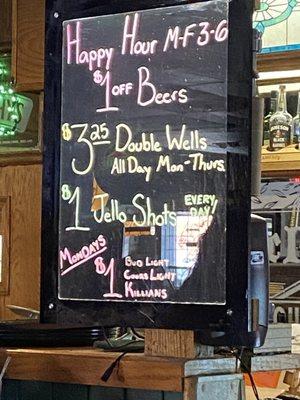 Happy Hour M-F 3-6
$1 OFF Beers
$3.25 Double Wells
All Day Mon-Thurs.
$1 Jello Shots EVERY DAY
MONDAYS
$1 Bud Light
Coors Light
Killians